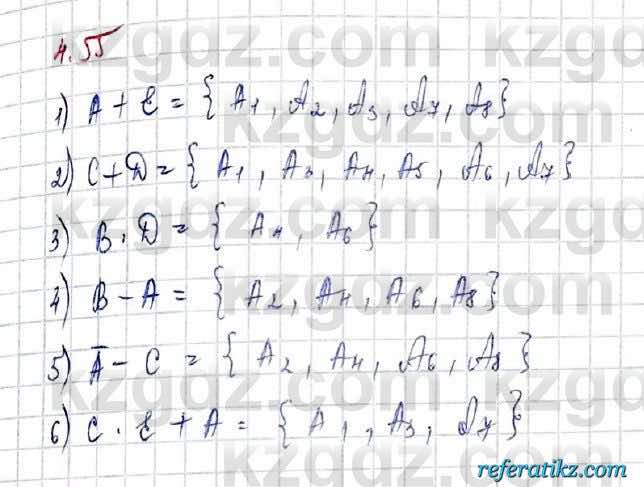 4.55
1) A + E = { A1, A2, A3, A7, A8}
2) C + D = { A1, A3, A4, A5, A6, A7}
3) B · D = { A4, A6}
4) B − A = { A2, A4, A6, A8}
5) Ā − C = { A2, A4, A6, A8}
6) C · E + A = { A1, A3, A7}
referatikz.com